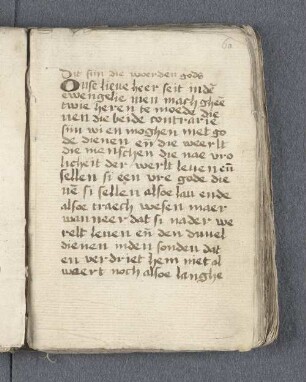 Dit sijn die woerden gods
Onse lieue heer seit indē
ewengelie men mach ghee
twie heren te moede die
nen die beide contrarie
sijn wi en moghen met go
de dienen eñ die weerlt
die menschen die nae vro
licheit der werlt leuen eñ
sellen si een vre gode die
nē si sellen alsoe lau ende
alsoe traech wesen maer
wanneer dat si nader we
relt leuen eñ den duuel
dienen inden sonden dat
en verdriet hem niet al
waert noch alsoe langhe